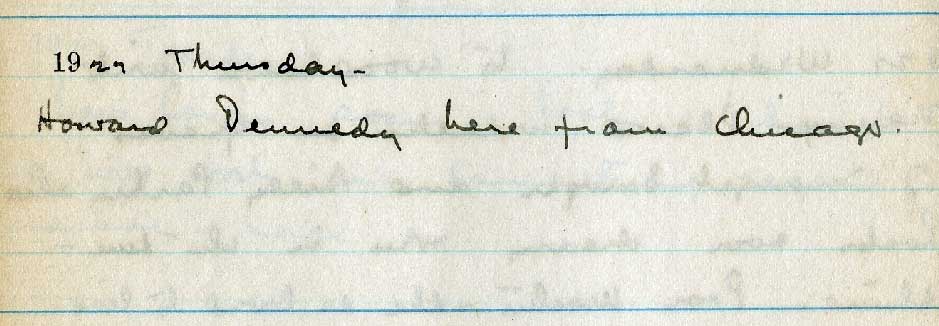 1922 Thursday-
Howard Dennedy here from Chicago.